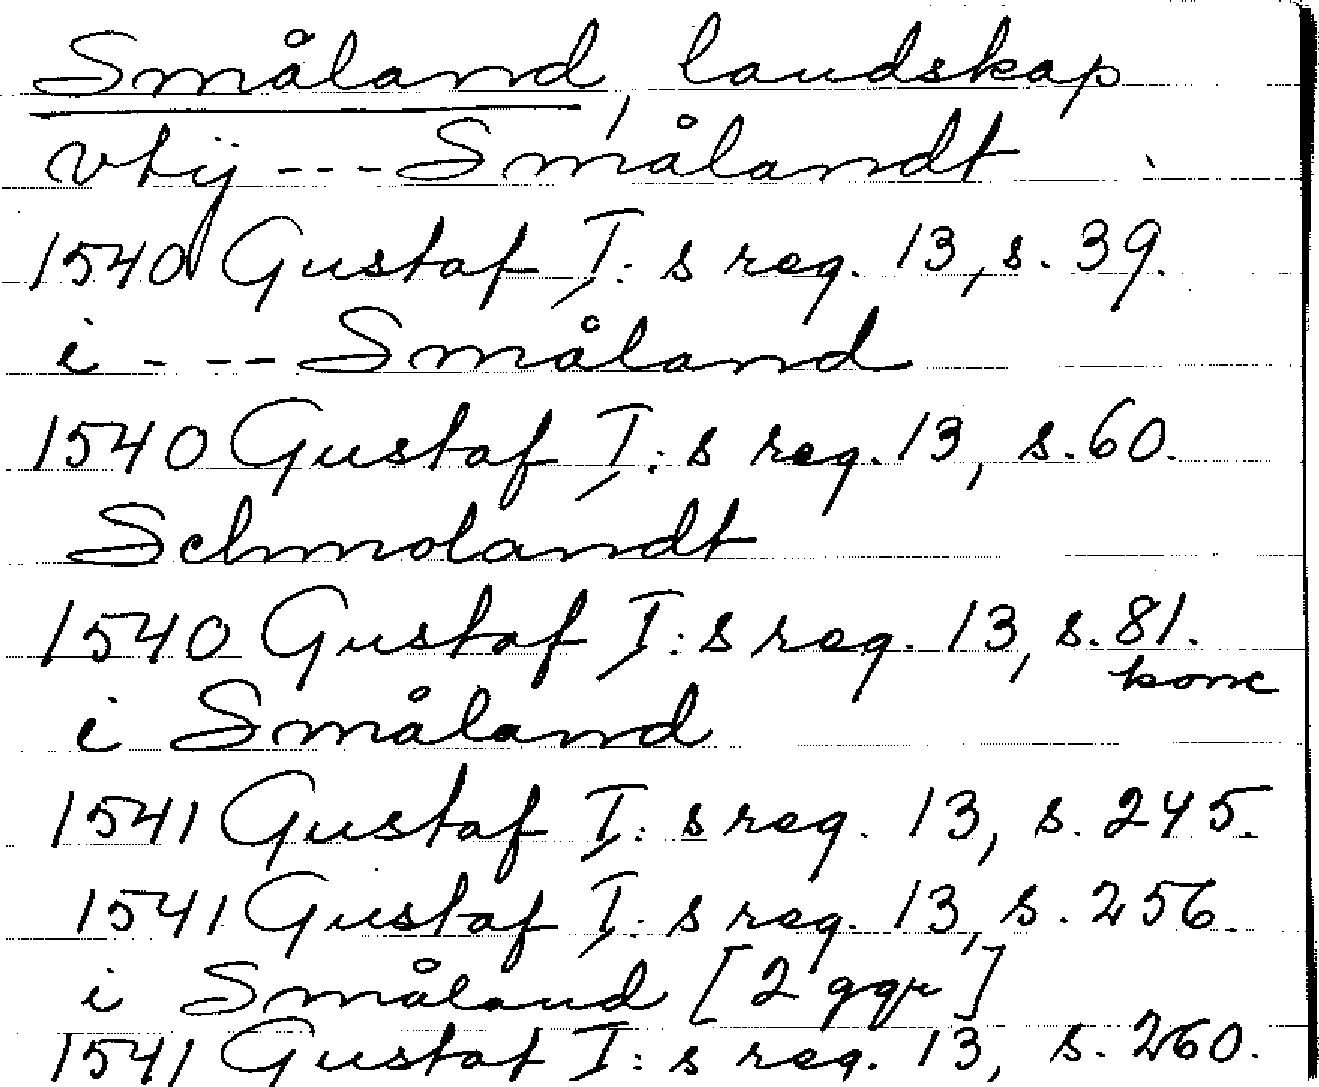 Småland, landskap
vtij --- Smålandt
1540 Gustaf I:s reg. 13, s. 39.
i --- Småland
1540 Gustaf I:s reg. 13, s. 60.
Schmolandt
1540 Gustaf I:s reg. 13, s. 81.
konc
i Småland
1541 Gustaf I:s reg. 13, s. 245.
1541 Gustaf I:s reg. 13, s. 256.
i Småland [2 ggr]
1541 Gustaf I:s reg. 13, s. 260.